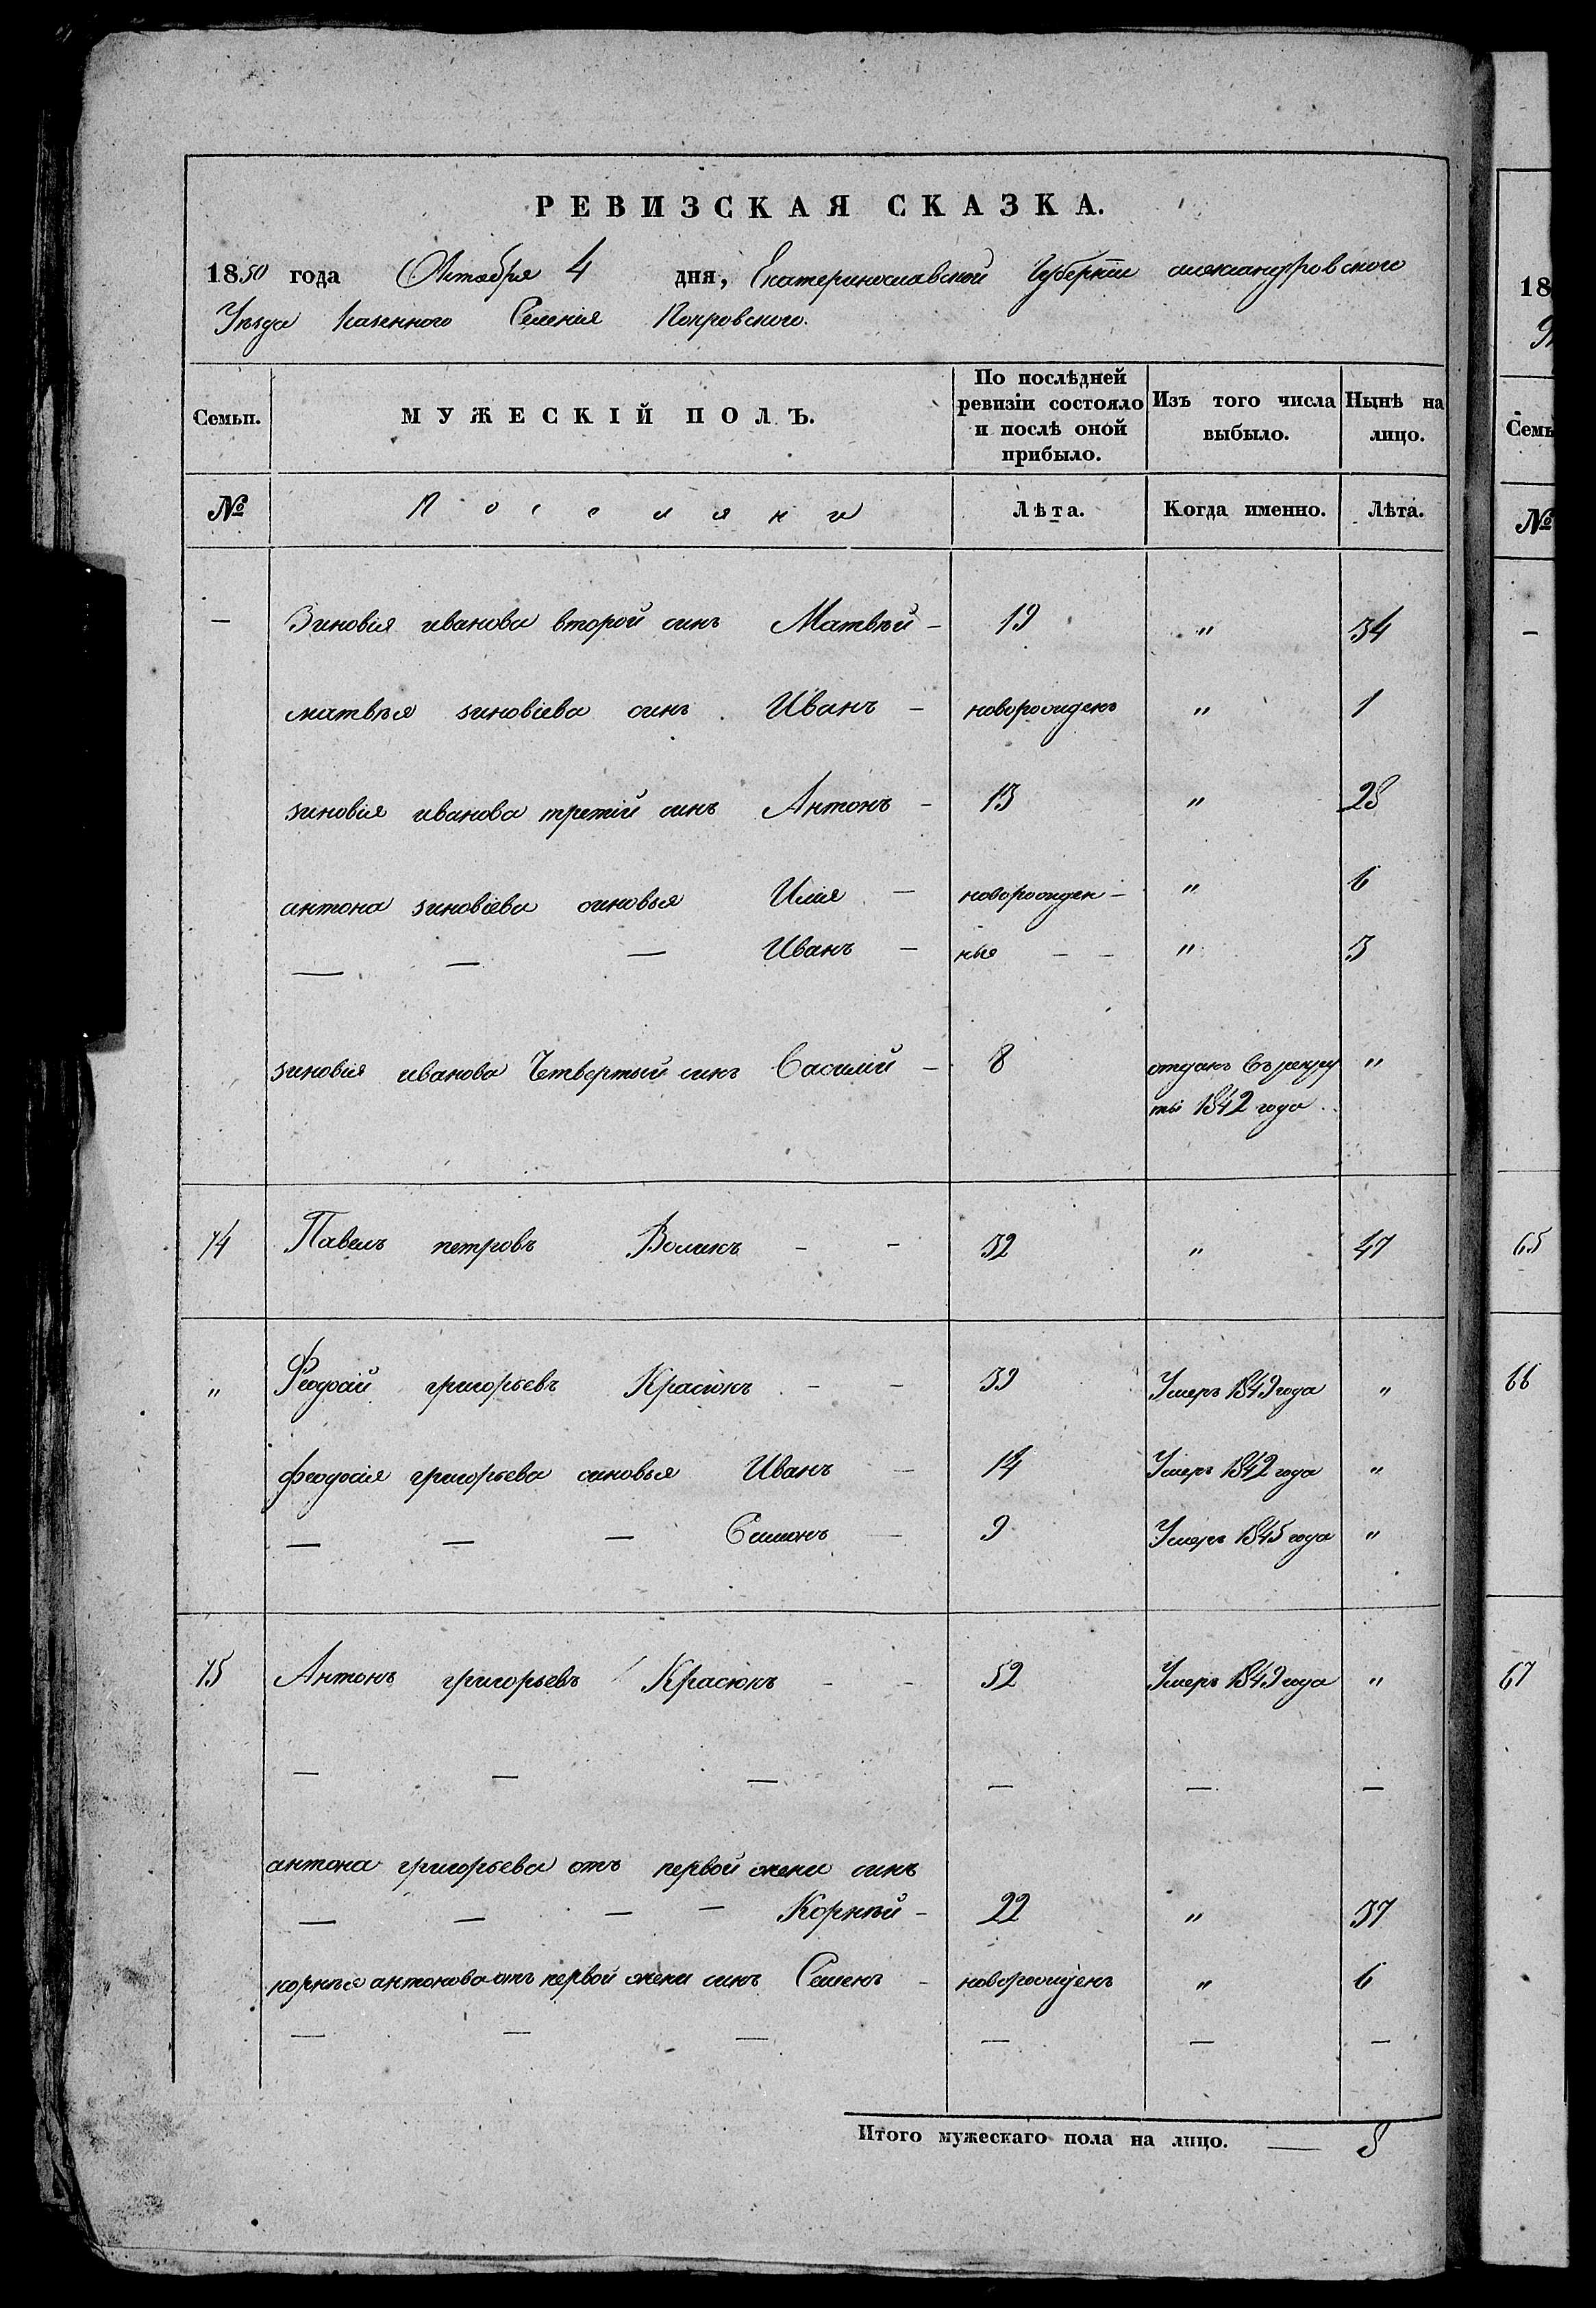 РЕВИЗСКАЯ СКАЗКА.
1850 года Октября 4 дня, Екатеринославской Губернiи александровского
Уезда Казенного Селенiя Покровского.
Семьи. МУЖЕСКIЙ ПОЛЪ. По послѣдней ревизiи состояло и послѣ оной прибыло. Изъ того числа выбыло. Нынѣ на лицо.
№ Поселяни Лѣта. Когда именно. Лѣта.
— Зиновiя иванова второй синъ Матвѣй — 19 " 34
матвѣя зиновiева синъ Иванъ — новорожденъ " 1
зиновiя иванова третiй синъ Антонъ — 13 " 28
антона зиновiева синовья Илiя — новорожден— " 6
— — — Иванъ — ные — — " 3
зиновiя иванова Четвертый синъ Василiй — 8 отданъ въ рекру "
ты 1842 года
74 Павелъ петровъ Воликъ — — 32 " 47
" Феодосiй григорьевъ Красюкъ — — 39 Умеръ 1849 года "
феодосiя григорьева синовья Иванъ — 14 Умеръ 1842 года "
— — — Симонъ — 9 Умеръ 1845 года "
75 Антонъ григорьевъ Красюкъ — — 52 Умеръ 1849 года "
— — — — — —
антона григорьева отъ первой жени синъ
— — — — Корнѣй — 22 " 37
корнѣя антонова отъ первой жени синъ Семенъ — новорожденъ " 6
— — — — — —
Итого мужескаго пола на лицо. — 8
18
Семь
№
—
65
66
67